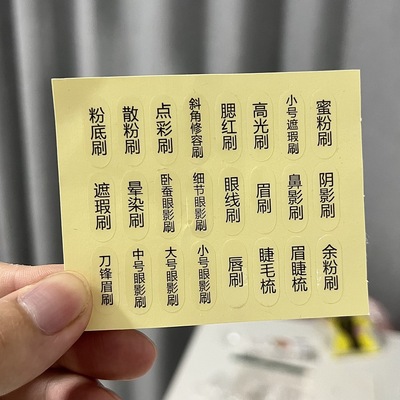 粉底刷
散粉刷
点彩刷
斜角修容刷
腮红刷
高光刷
小号遮瑕刷
蜜粉刷
遮瑕刷
晕染刷
卧蚕眼影刷
细节眼影刷
眼线刷
眉刷
鼻影刷
阴影刷
刀锋眉刷
中号眼影刷
大号眼影刷
小号眼影刷
唇刷
睫毛梳
眉睫梳
余粉刷